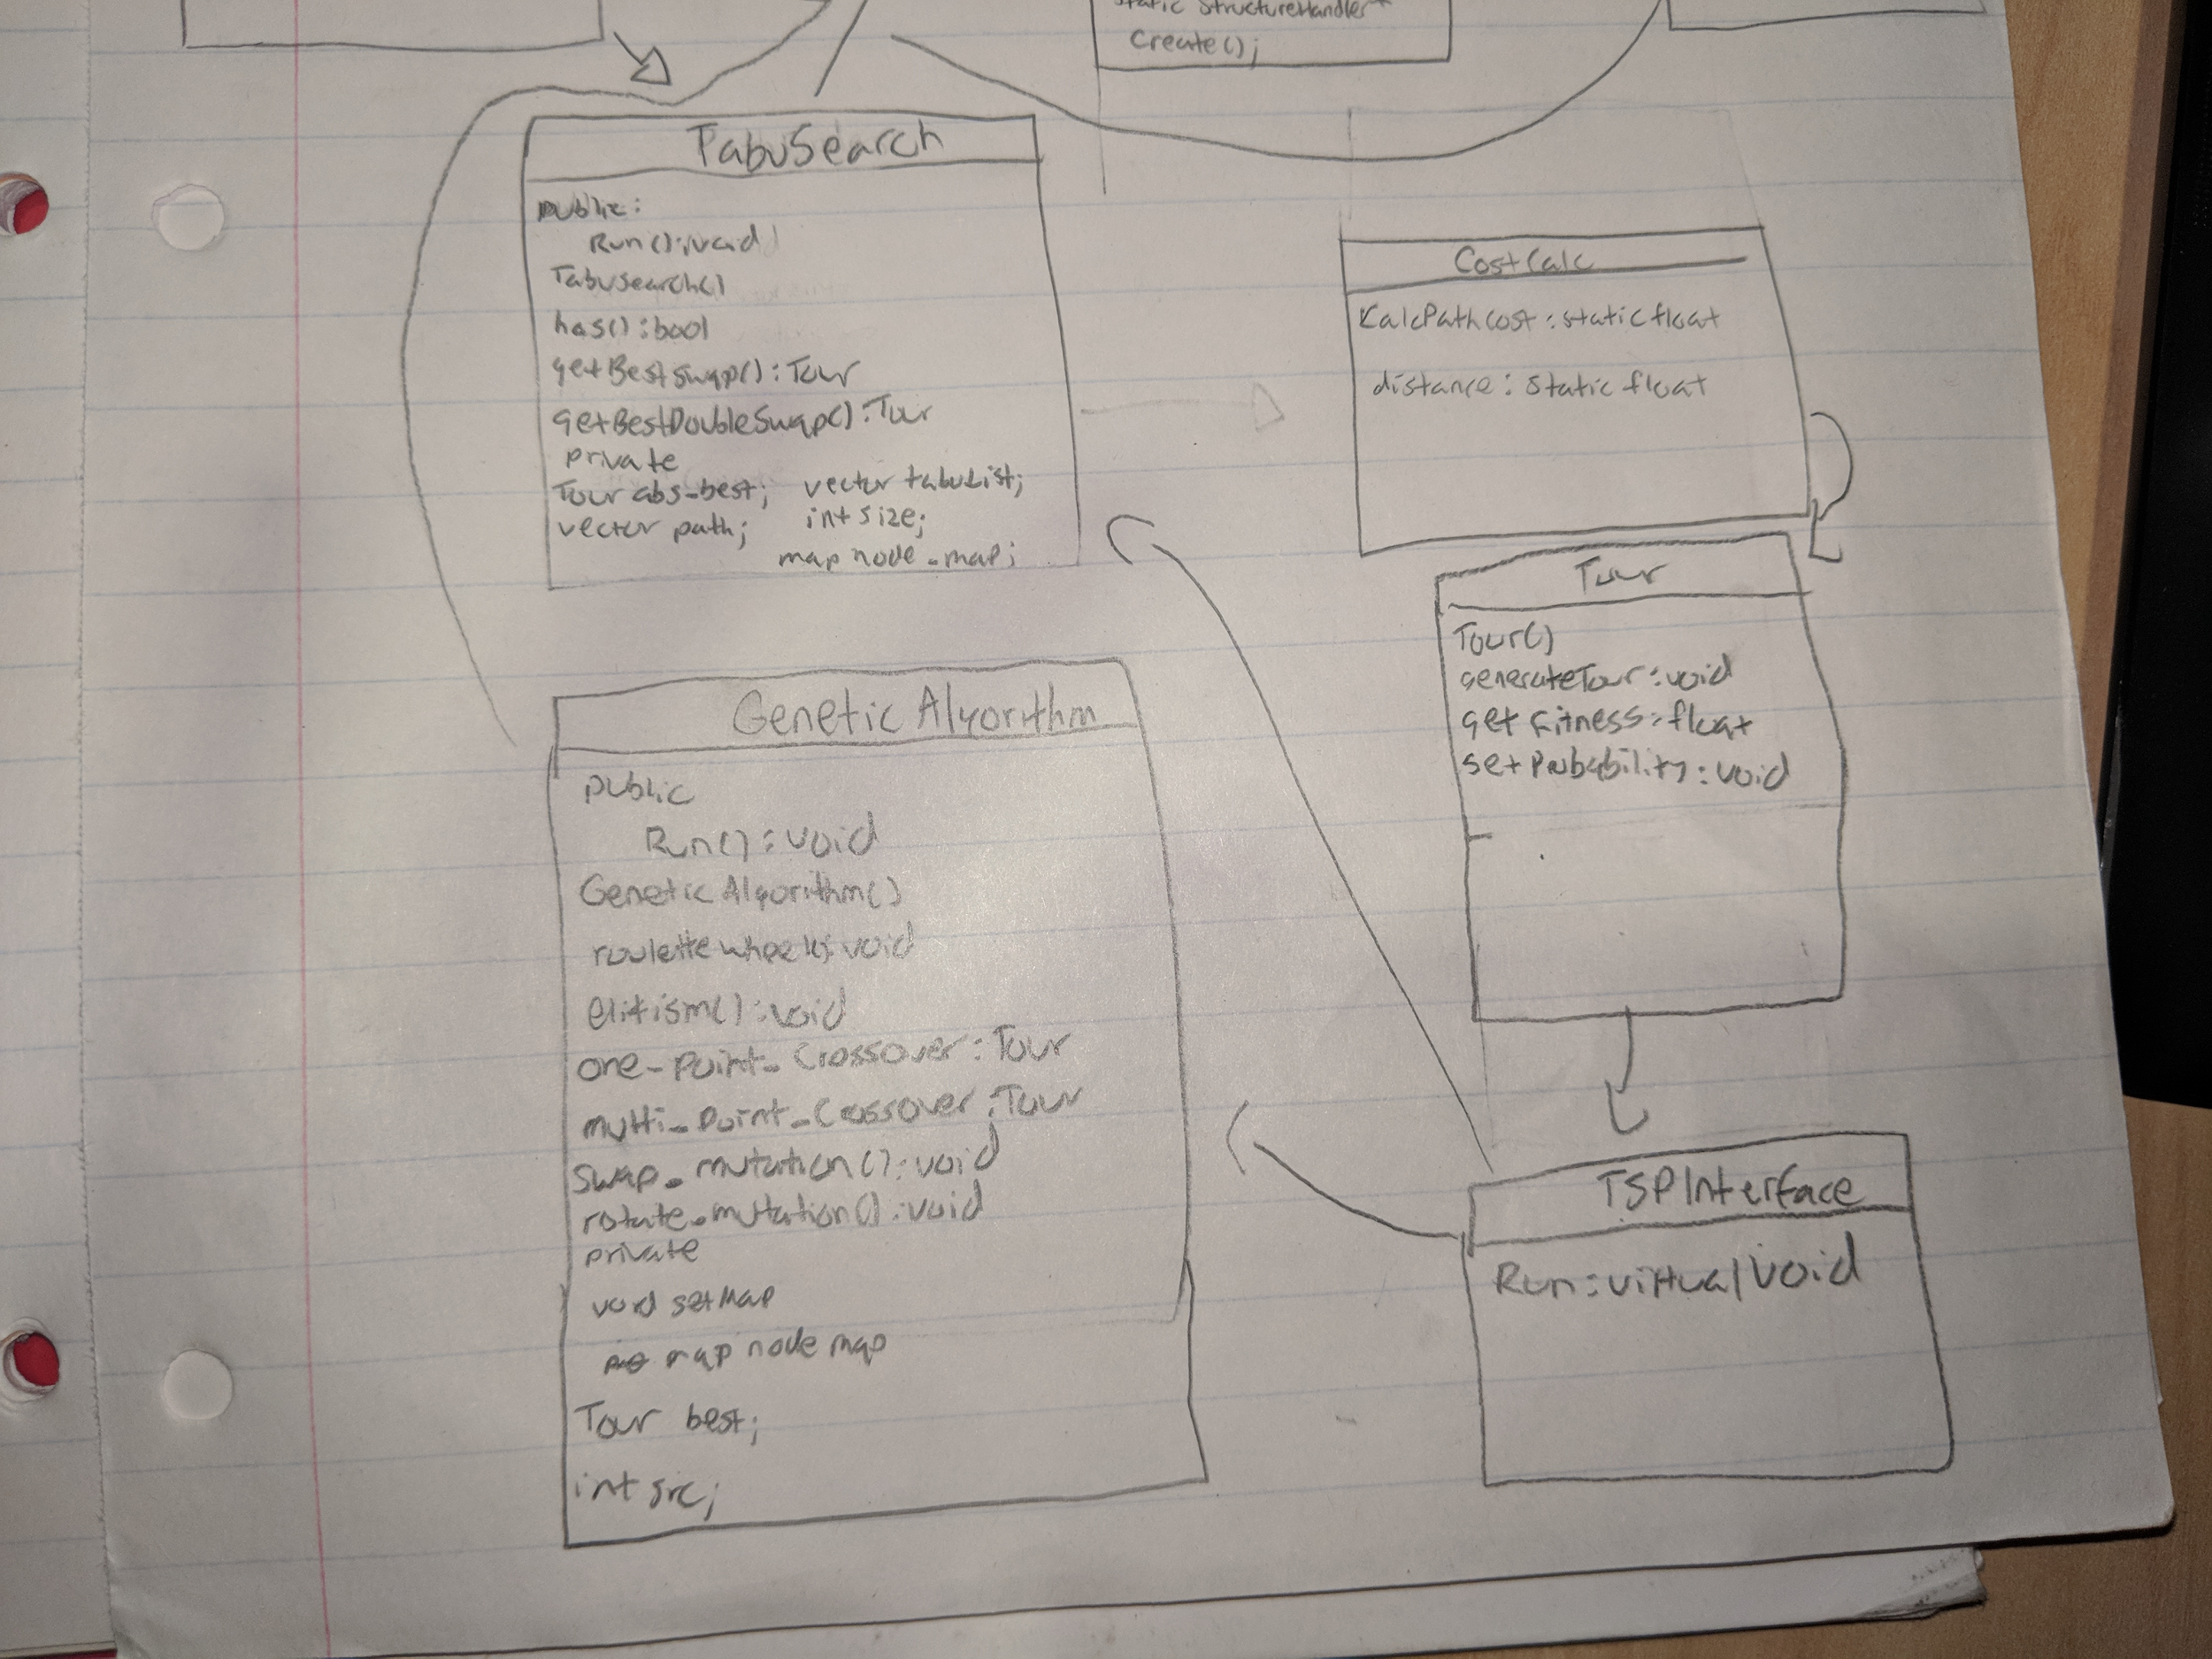 static StructureHandler*
Create();
TabuSearch
public:
Run():void
TabuSearch()
has():bool
getBestSwap():Tour
getBestDoubleSwap():Tour
private
Tour abs_best; vector tabuList;
vector path; int size;
map node_map;
CostCalc
CalcPathCost:static float
distance:static float
Tour
Tour()
generateTour:void
getFitness:float
setProbability:void
Genetic Algorithm
public
Run():void
Genetic Algorithm()
roulette wheel():void
elitism():void
one_point_Crossover:Tour
multi_Point_Crossover:Tour
swap_mutation():void
rotate_mutation():void
private
void setMap
map node map
Tour best;
int src;
TSPInterface
Run:virtual void